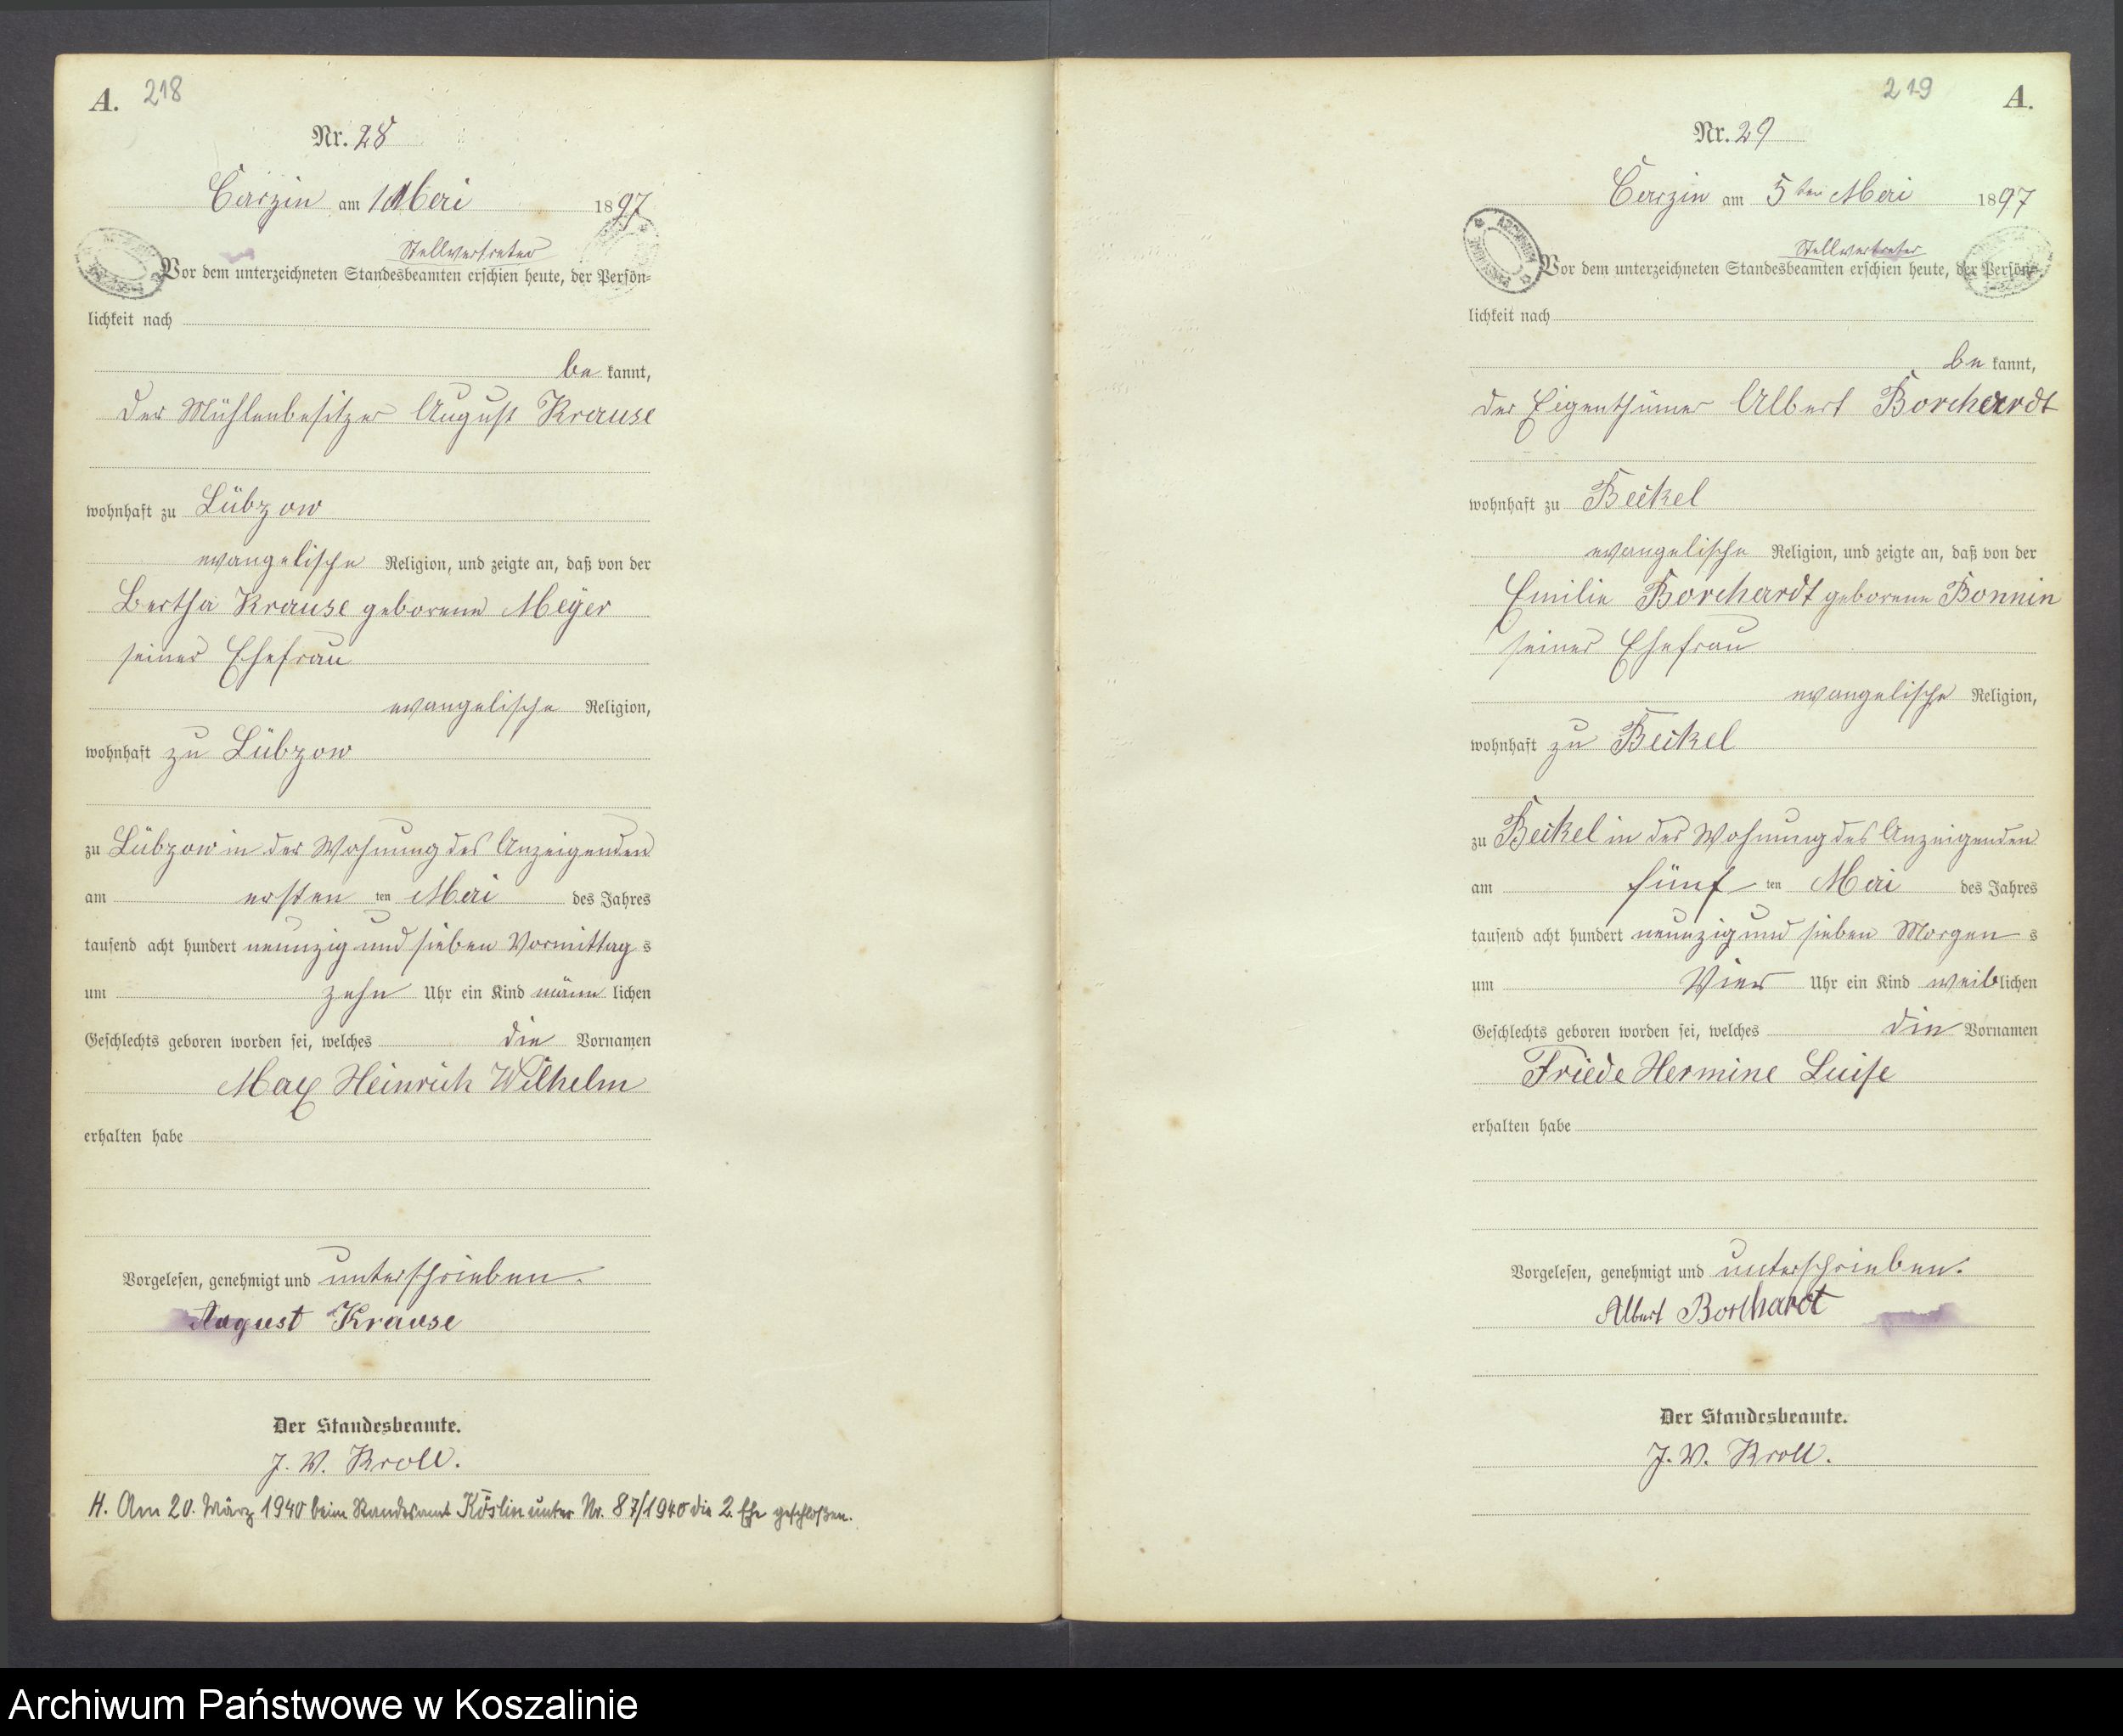 A. 218
Nr. 28
Carzin am 1 Mai 1897
Stellvertreter
Vor dem unterzeichneten Standesbeamten erschien heute, der Persön=
lichkeit nach
be kannt,
der Mühlenbesitzer August Krause
wohnhaft zu Lübzow
evangelische Religion, und zeigte an, daß von der
Bertha Krause geborene Meÿer
seiner Ehefrau
evangelische Religion,
wohnhaft zu Lübzow
zu Lübzow in der Wohnung des Anzeigenden
am ersten ten Mai des Jahres
tausend acht hundert neunzig und sieben Vormittag s
um zehn Uhr ein Kind männ lichen
Geschlechts geboren worden sei, welches die Vornamen
Max Heinrich Wilhelm
erhalten habe
Vorgelesen, genehmigt und unterschrieben.
August Krause
Der Standesbeamte.
J. V. Kroll.
H. Am 20. März 1940 beim Standesamt Köslin unter Nr. 87/1940 die 2. Ehe geschloßen.
219 A.
Nr. 29
Carzin am 5 ten Mai 1897
Stellvertreter
Vor dem unterzeichneten Standesbeamten erschien heute, der Persön=
lichkeit nach
be kannt,
der Eigenthümer Albert Borchardt
wohnhaft zu Beckel
evangelische Religion, und zeigte an, daß von der
Emilie Borchardt geborene Bonnin
seiner Ehefrau
evangelische Religion,
wohnhaft zu Beckel
zu Beckel in der Wohnung des Anzeigenden
am fünf ten Mai des Jahres
tausend acht hundert neunzig und sieben Morgen s
um Vier Uhr ein Kind weiblichen
Geschlechts geboren worden sei, welches die Vornamen
Friede Hermine Luise
erhalten habe
Vorgelesen, genehmigt und unterschrieben.
Albert Borchardt
Der Standesbeamte.
J. V. Kroll.
Archiwum Państwowe w Koszalinie